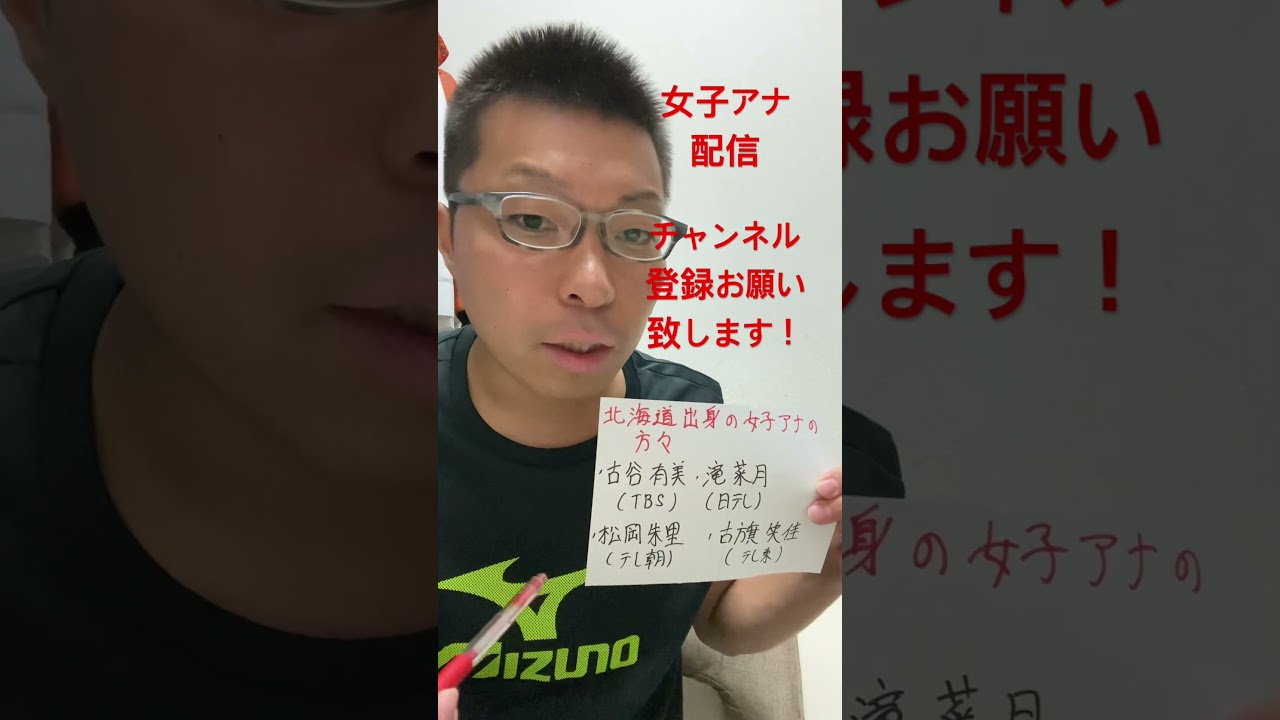 女子アナ
配信
チャンネル
登録お願い
致します！
北海道出身の女子アナの
方々
・古谷有美・滝菜月
(TBS) (日テレ)
・松岡朱里 ・古旗笑佳
(テレ朝) (テレ東)
MIZUNO
ンネル
録お願い
します！
身の女子アナの
滝菜月